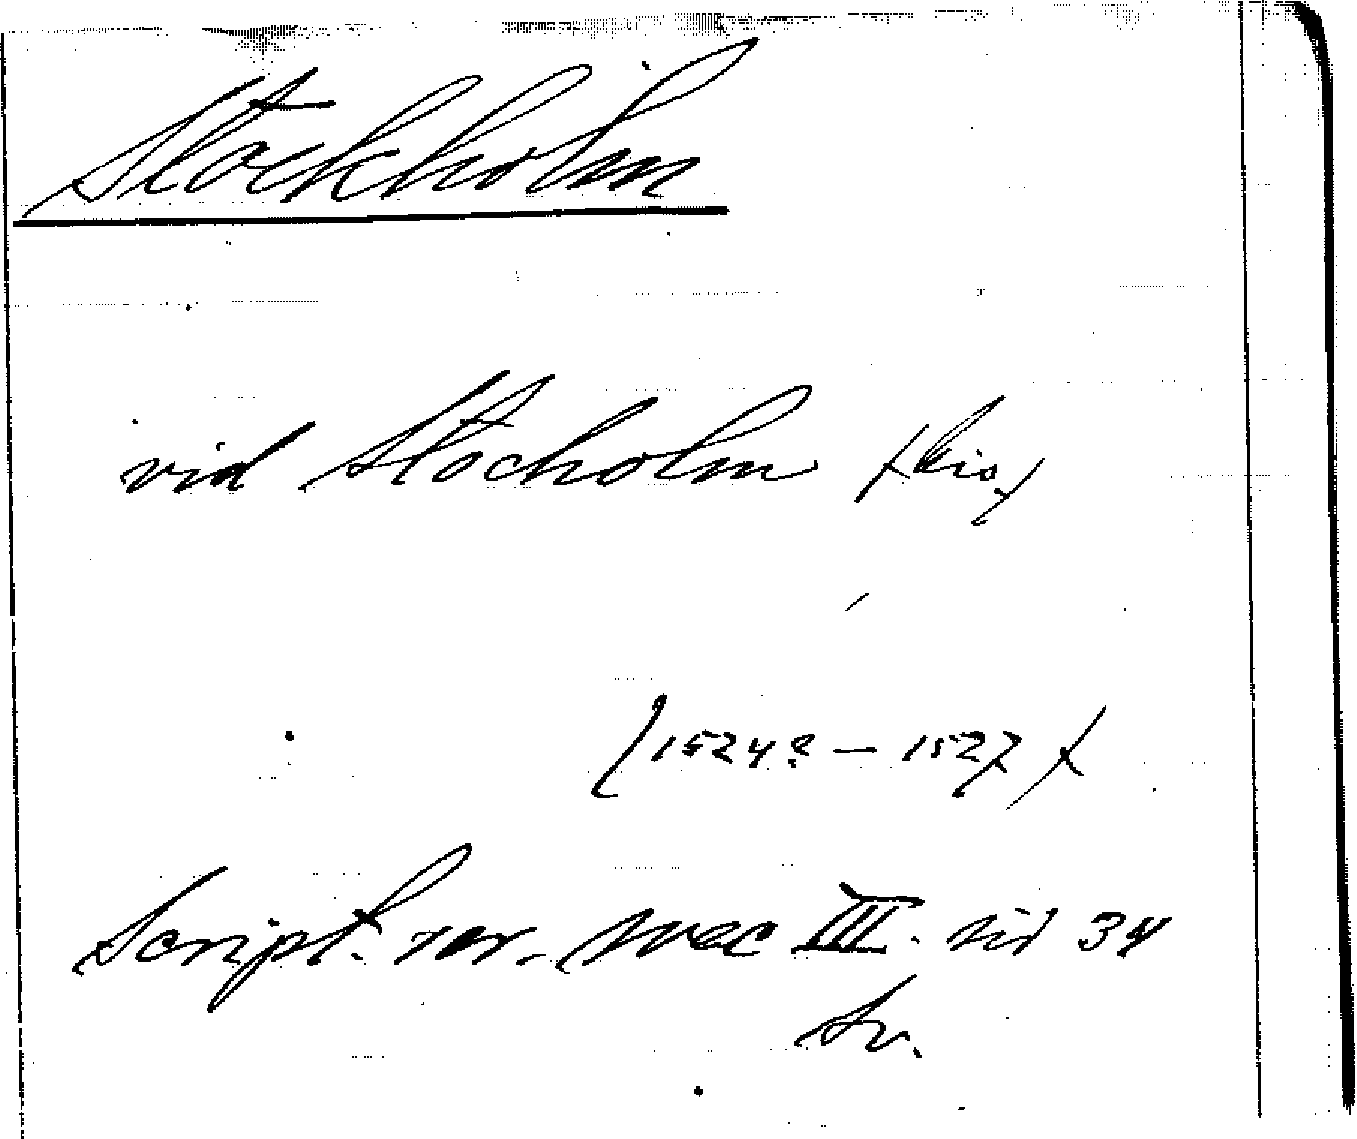 Stockholm
vid Stocholm (bis)
(1524? — 1527)
Script. rer. svec III. sid 34
Sv.